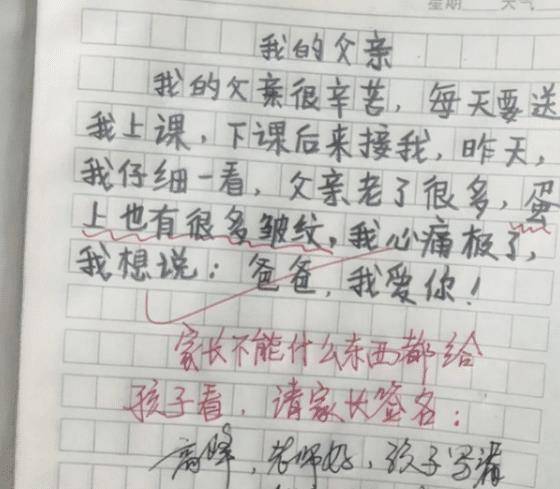 星期 天气
我的父亲
我的父亲很辛苦，每天要送
我上课，下课后来接我，昨天，
我仔细一看，父亲老了很多，蛋
上也有很多皱纹，我心痛极了，
我想说：爸爸，我爱你！
家长不能什么东西都给
孩子看，请家长签名：
高峰，老师好，孩子写错